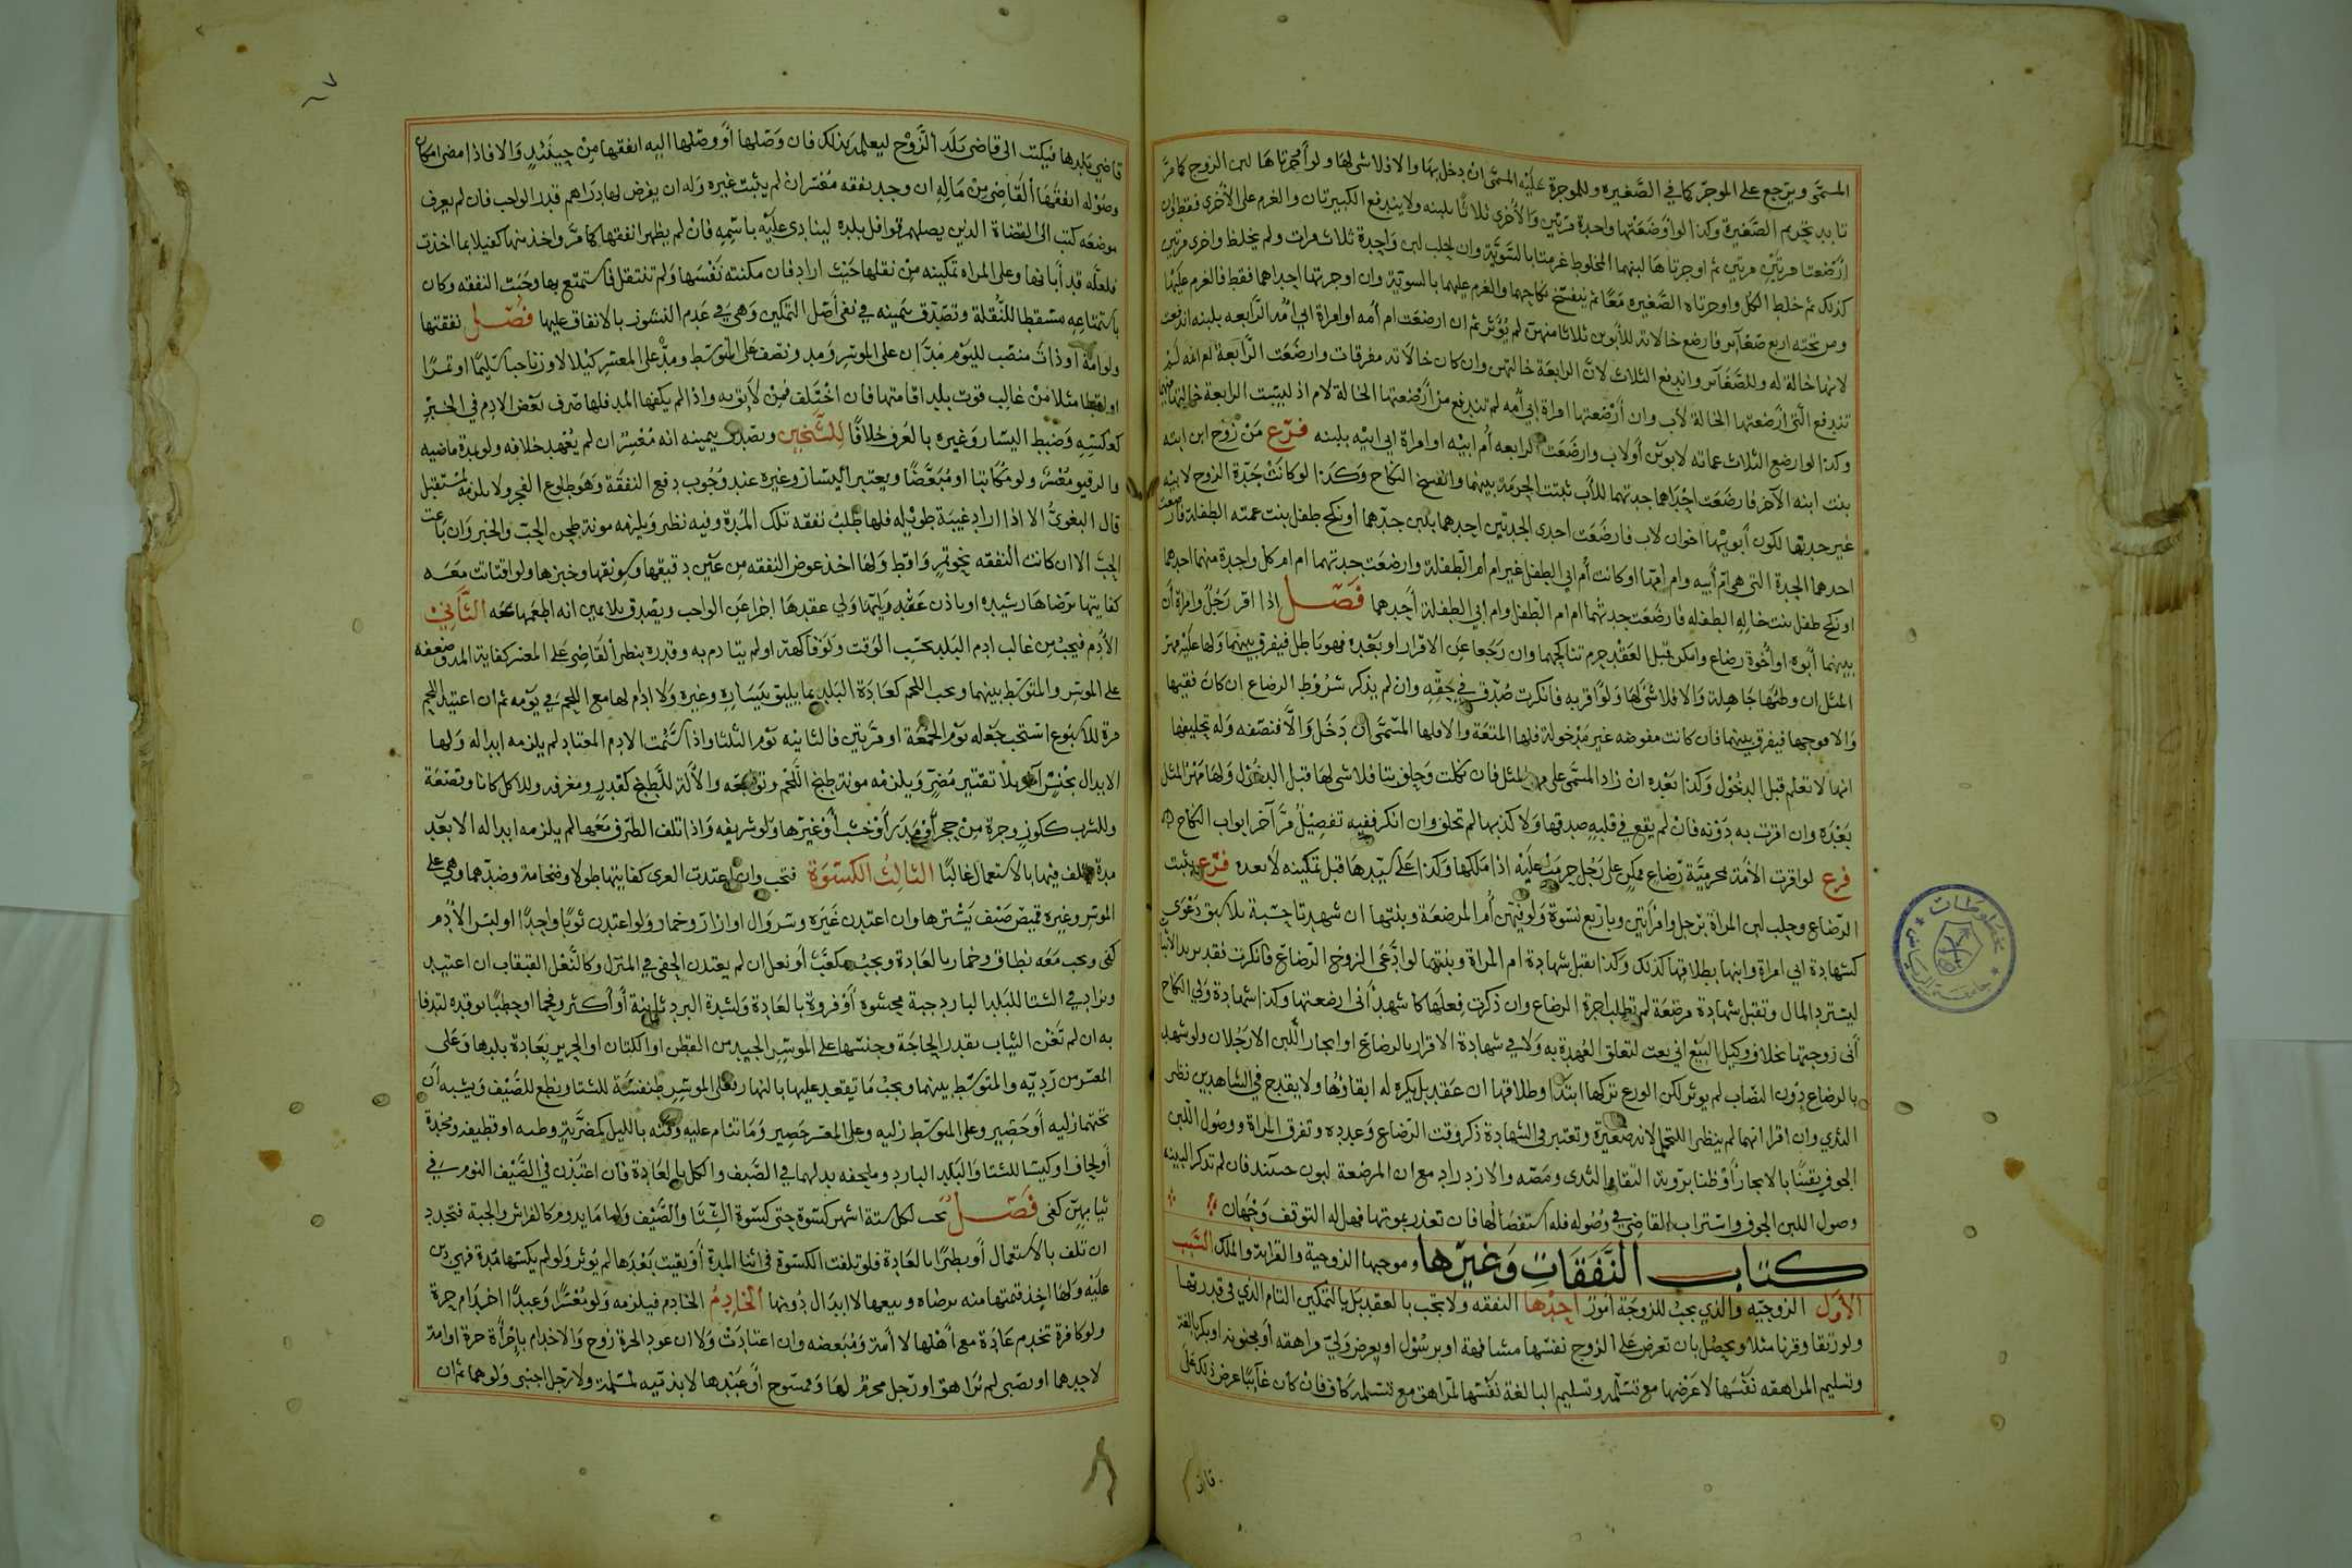 المسمى ويرجع على الموجر كما في الصغيره وللموجرة عليه المسمى ان دخل بها والا فلا شى لها ولو اوجرتاها لبن الزوج كما مر
تابد تحريم الصغيرة وكذا لو اوضعتها واحدة مرتين والأخرى ثلاثا بلبنه ولا يندفع الكبيرتان والغرم على الأخرى فقط وان
ارضعتا مرتين مرتين ثم اوجرتاها لبنهما المخلوط غرمتا بالسوية وان حلب لبن واحدة ثلاث مرات ولم يخلط واخرى مرتين
كذلك ثم خلط الكل واوجرتاه الصغيره معا ثم ينفسخ نكاحهما والغرم عليهما بالسوية وان اوجرتها احداهما فقط فالغرم عليها
ومن تحته اربع صغاير فارضع خالاته للأبوين ثلاثا منهن لم يؤثر ثم ان ارضعت ام أمه او امراة ابي أمه الرابعه بلبنه اندفعت
لانها خالة له وللصغاير واندفع الثلاث لان الرابعة خالتهن وان كان خالاته مفرقات وارضعت الرابعة ام امه لم
تندفع التي ارضعتها الخالة لاب وان أرضعتها امراة ابي أمه لم تندفع من أرضعتها الخالة لام اذ ليست الرابعة خالتها
وكذا لو ارضع الثلاث عماته لابوين أو لاب وارضعت الرابعه أم ابيه او امراة ابي ابيه بلبنه فرع من زوج ابن ابنه
بنت ابنه الآخر فارضعت احداهما جدتهما للأب ثبتت الحرمة بينهما وانفسخ النكاح وكذا لو كانت جدة الزوج لابيه
غير جدتها لكون أبويهما اخوان لاب فارضعت احدى الجدتين احدهما بلبن جدهما او نكح طفل بنت عمته الطفلة فارضعت
احدهما الجدة التي هي ام أبيه وام امها او كانت أم ابي الطفل غير ام أم الطفلة وارضعت جدتهما ام ام كل واحدة منهما احدهما
او نكح طفل بنت خاله الطفله فارضعت جدتهما ام ام الطفل وام ابي الطفلة أحدهما فصل اذا اقر رجل وامراة أن
بينهما أبوه او أخوة رضاع وامكن قبل العقد حرم تناكحهما وان رجعا عن الاقرار او بعده فهو باطل فيفرق بينهما ولها عليه مهر
المثل ان وطئها جاهلة والا فلا شى لها ولو اقر به فانكرت صدق في حقه وان لم يذكر شروط الرضاع ان كان فقيها
والا فموجبها فيفرق بينهما فان كانت مفوضه غير مدخولة فلها المتعة والا فلها المسمى ان دخل والا فنصفه وله تحليفها
انها لا تعلم قبل الدخول وكذا بعده ان زاد المسمى على مهر المثل فان نكلت وحلف بتا فلا شى لها قبل الدخول ولها مهر المثل
بعده وان اقرت به دونه فان لم يقع في قلبه صدقها ولا كذبها لم تحلف وان انكر ففيه تفصيل مر آخر ابواب النكاح
فرع لو اقرت الأمة بمحرمية رضاع ممكن على رجل حرمت عليه اذا ملكها وكذا على سيدها قبل تمكينه لا بعده فرع يثبت
الرضاع وحلب لبن المراة برجل وامراتين وباربع نسوة ولو فيهن أم المرضعة وبنتها ان شهدتا حسبة بلا سبق دعوى
كشهادة ابي امراة وابنها بطلاقها كذلك وكذا تقبل شهادة ام المراة وبنتها لو ادعى الزوج الرضاع فانكرت فقد يريد الاثبات
ليسترد المال وتقبل شهادة مرضعة لم تطلب اجرة الرضاع وان ذكرت فعلها كاشهد أني ارضعتها وكذا شهادة ولي النكاح
أني زوجتها بخلاف وكيل البيع اني بعت لتعلق العهدة به ولا في شهادة الاقرار بالرضاع او ايجار اللبن الا رجلان ولو شهد
بالرضاع دون النصاب لم يوثر لكن الورع تركها ابتدا وطلاقها ان عقد بل يكره له ابقاؤها ولا يقدح في الشاهدين نظر
الثدي وان اقرا انهما لم ينظرا للتحمل لانه صغيرة وتعتبر في الشهادة ذكر وقت الرضاع وعدده وتفرق المراة ووصول اللبن
الجوف يقينا بالايجار أو ظنا بروية التقام الثدى ومصه والازدراد مع ان المرضعة لبون حينئذ فان لم تذكر البينه
وصول اللبن الجوف واستراب القاضي في وصوله فله استفصالها فان تعذر بموتها فهل له التوقف وجهان
كتاب النفقات وغيرها وموجبها الزوجية والقرابة والملك السبب
الأول الزوجيه والذي يجب للزوجة امور احدها النفقه ولا تجب بالعقد بل بالتمكين التام الذي في قدرتها
ولو رتقا وقرنا مثلا ويحصل بان تعرض على الزوج نفسها مشافهة او برسول او يعرض ولي مراهقه أو مجنونه او بكر بالغة
وتسليم المراهقه نفسها لا عرضها مع تسلمه وتسليم البالغة نفسها لمراهق مع تسلمه كاف فان كان غايبا عرض ذلك على
قاض
قاضي بلدها فيكتب الى قاضي بلد الزوج ليعلمه بذلك فان وصلها أو وصلها اليه انفقها من حينئذ والا فاذا مضى امكان
وصوله انفقها القاضي من ماله ان وجد نفقه معسر ان لم يثبت غيره وله ان يفرض لها دراهم قدر الواجب فان لم يعرف
موضعه كتب الى القضاة الذين يصلهم قوافل بلده لينادى عليه باسمه فان لم يظهر انفقها كما مر واخذ منها كفيلا بما اخذت
فلعله قد أبانها وعلى المراه تمكينه من نقلها حيث اراد فان مكنته نفسها ولم تنتقل فاستمتع بها وجبت النفقه وكان
باستمتاعه مسقطا للنقلة وتصدق بيمينه في نفى أصل التمكين وهي في عدم النشوز بالانفاق عليها فصل نفقتها
ولو امة او ذات منصب لليوم مدان على الموسر ومد ونصف على المتوسط ومد على المعسر كيلا لا وزنا حبا سليما او تمرا
او اقطا مثلا من غالب قوت بلد اقامتها فان اختلف فمن لايق به واذا لم يكفها المد فلها صرف بعض الادم في الخبز
كعكسه وضبط اليسار وغيره بالعرف خلافا للشيخين وتصدق بيمينه انه معسر ان لم يعهد خلافه ولو بمدة ماضيه
والرقيق معسر ولو مكاتبا او مبعضا ويعتبر اليسار وغيره عند وجوب دفع النفقة وهو طلوع الفجر ولا يلزمه لمستقبل
قال البغوي الا اذا اراد غيبة طويله فلها طلب نفقه تلك المدة وفيه نظر ويلزمه مونة طحن الحب والخبز وان باعت
الحب الا ان كانت النفقه نحو تمر واقط ولها اخذ عوض النفقه من غير دقيقها وسويقها وخبزها ولو اقتاتت معه
كفايتها برضاها رشيده او باذن عقد ولي عقدها اجزا عن الواجب ويصدق بلا يمين انه اطعمها معه الثاني
الأدم فيجب من غالب ادم البلد بحسب الوقت ولو فاكهة او لم يتادم به وقدره بنظر القاضي على المعسر كفاية المد وضعفه
على الموسر والمتوسط بينهما ويجب اللحم كعادة البلد بما يليق بيساره وغيره ولا ادام لها مع اللحم في يومه ثم ان اعتيد اللحم
مرة للاسبوع استحب جعله يوم الجمعة او مرتين فالثانيه يوم الثلثا واذا سئمت الادم المعتاد لم يلزمه ابداله ولها
الابدال بجنس آخر بلا تقتير مضر ويلزمه مونة طبخ اللحم وتوابعه والألة للطبخ كقدر ومغرفه وللاكل كاناء وقصعة
وللشرب ككوز وجرة من حجر أو مدر أو خشب أو غيرها ولو شريفه واذا تلف الظرف معها لم يلزمه ابداله الا بعد
مدة تلف فيها بالاستعمال غالبا الثالث الكسوة فتجب وان اعتدت العرى كفايتها طولا وضخامة وضدهما وهي على
الموسر وغيره قميص صنف يسترها وان اعتدن غيره وسروال او ازار وخمار ولو اعتدن ثوبا واحدا او لبس الأدم
كفى ويجب معه نطاق وخمار بالعادة ويجب مكعب أو نعل ان لم يعتدن الحفى في المنزل وكالنعل القبقاب ان اعتيد
ويزاد في الشتا للبلد البارد جبة محشوه أو فروة بالعادة ولشدة البرد ثانية أو أكثر وفحما او حطبا توقده لتدفا
به ان لم تغن الثياب بقدر الحاجة وجنسها على الموسر الجيد من القطن او الكتان او الحرير بعادة بلدها وعلى
المعسر من رديه والمتوسط بينهما ويجب ما يقعد عليها بالنهار فعلى الموسر طنفسة للشتا ونطع للصيف ويشبه أن
تحتهما زليه أو حصير وعلى المتوسط زليه وعلى المعسر حصير وما تنام عليه وفيه بالليل كمضربة وطيه او قطيفه ومخدة
أو لحاف او كيسا للشتا والبلد البارد وملحفه بدلهما في الصيف والكل بالعادة فان اعتدن في الصيف النوم في
ثيابهن كفى فصل تجب لكل ستة اشهر كسوة حتى كسوة الشتا والصيف ولما ما يدوم كالفرش والجبة فتجدد
ان تلف بالاستعمال أو بطئا بالعادة فلو تلفت الكسوة في اثنا المدة أو بقيت بعدها لم يوثر ولو لم يكسها مدة فهي دين
عليه ولها اخذ قيمتها منه برضاه وبيعها لا ابدال دونها الخادم الخادم فيلزمه ولو معسرا وعبدا اخدام حرة
ولو كافرة تخدم عادة مع أهلها لا أمة ومبعضه وان اعتادت ولا ان عود الحرة زوج والاخدام بامرأة حرة او امة
لاحدهما او بصبى لم يراهق او رجل محرم لها وممسوح أو عبدها لا بذميه لمسلمة ولا رجل اجنبى ولو هما ثم ان